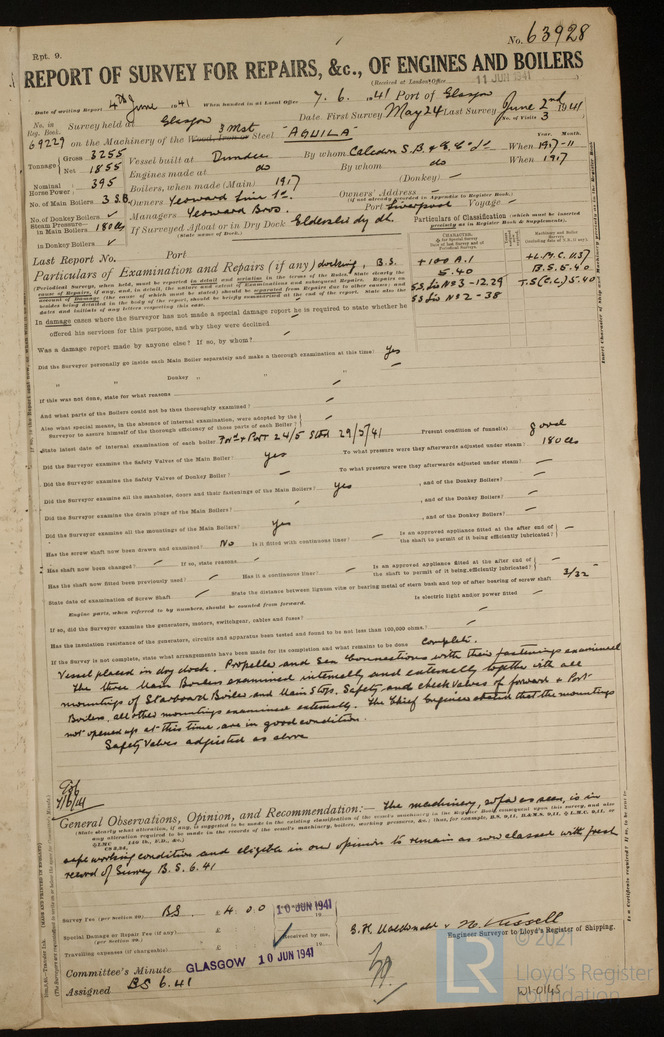 Rpt. 9.
No. 63928
REPORT OF SURVEY FOR REPAIRS, &c., OF ENGINES AND BOILERS
(Received at London Office 11 JUN 1941
Date of writing Report 4th June 1941 When handed in at Local Office 7.6.1941 Port of Glasgow
No. in Reg. Book. Survey held at Glasgow Date. First Survey May 24 Last Survey June 2nd 1941
No. of Visits 3
69229 on the Machinery of the Wood, Iron or Steel 3 Mst "AGUILA"
Tonnage Gross 3255 Vessel built at Dundee By whom Caledon S.B. & E. Co Ld When 1917-11
Year. Month.
Net 1855 Engines made at do By whom do When 1917
Nominal Horse Power 395 Boilers, when made (Main) 1917 (Donkey)
No. of Main Boilers 3 S.B. Owners Yeoward Line Ld Owners' Address
(if not already recorded in Appendix to Register Book.)
No. of Donkey Boilers ✓ Managers Yeoward Bros. Port Liverpool Voyage
Steam Pressure— in Main Boilers 180 lbs If Surveyed Afloat or in Dry Dock Elderslie dy dk.
(State name of Dock.)
in Donkey Boilers ✓
Particulars of Classification (which must be inserted precisely as in Register Book & Supplements).
CHARACTER.
Machinery and Boiler Survey
+100 A.1 +L.M.C. 11.37
5.40 B.S. 5.40
SS. Lis No 3 - 12.29 T.S (C.L) 5.40
SS Lis No 2 - 38
Last Report No. Port
Particulars of Examination and Repairs (if any) docking, B.S.
In damage cases where the Surveyor has not made a special damage report he is required to state whether he
offered his services for this purpose, and why they were declined
Was a damage report made by anyone else? If so, by whom?
Did the Surveyor personally go inside each Main Boiler separately and make a thorough examination at this time? Yes
" " Donkey " " "
If this was not done, state for what reasons
And what parts of the Boilers could not be thus thoroughly examined?
Also what special means, in the absence of internal examination, were adopted by the
Surveyor to assure himself of the thorough efficiency of those parts of each Boiler?
State latest date of internal examination of each boiler Ford & Port 24/5 Stbd 29/5/41 Present condition of funnel(s) good
Did the Surveyor examine the Safety Valves of the Main Boiler? yes To what pressure were they afterwards adjusted under steam? 180 lbs
Did the Surveyor examine the Safety Valves of Donkey Boiler? To what pressure were they afterwards adjusted under steam?
Did the Surveyor examine all the manholes, doors and their fastenings of the Main Boilers? Yes , and of the Donkey Boilers?
Did the Surveyor examine the drain plugs of the Main Boilers? , and of the Donkey Boilers?
Did the Surveyor examine all the mountings of the Main Boilers? Yes , and of the Donkey Boilers?
Has the screw shaft now been drawn and examined? No Is it fitted with continuous liner? Is an approved appliance fitted at the after end of the shaft to permit of it being efficiently lubricated?
Has shaft now been changed? If so, state reasons
Has the shaft now fitted been previously used? Has it a continuous liner? Is an approved appliance fitted at the after end of the shaft to permit of it being efficiently lubricated?
State date of examination of Screw Shaft State the distance between lignum vitæ or bearing metal of stern bush and top of after bearing of screw shaft 3/32
Engine parts, when referred to by numbers, should be counted from forward. Is electric light and/or power fitted
If so, did the Surveyor examine the generators, motors, switchgear, cables and fuses?
Has the insulation resistance of the generators, circuits and apparatus been tested and found to be not less than 100,000 ohms?
If the Survey is not complete, state what arrangements have been made for its completion and what remains to be done Complete.
Vessel placed in dry dock. Propeller and Sea Connections with their fastenings examined
The three Main Boilers examined internally and externally together with all
mountings of Starboard Boiler and Main Stops, Safety, and check valves of forward & Port
Boilers, all other mountings examined externally. The Chief Engineer stated that the mountings
not opened up at this time, are in good condition.
Safety Valves adjusted as above
General Observations, Opinion, and Recommendation:— The machinery, so far as seen, is in
safe working condition and eligible in our opinion to remain as now classed with fresh
record of Survey B.S. 6.41
Survey Fee (per Section 29) BS £ 4.0.0 10 JUN 1941
Special Damage or Repair Fee (if any) (per Section 29.) £ Received by me,
Travelling expenses (if chargeable) £ 19
Engineer Surveyor to Lloyd's Register of Shipping.
Committee's Minute GLASGOW 10 JUN 1941
Assigned BS 6.41
LR
© 2021
Lloyd's Register
Foundation
W1-0145